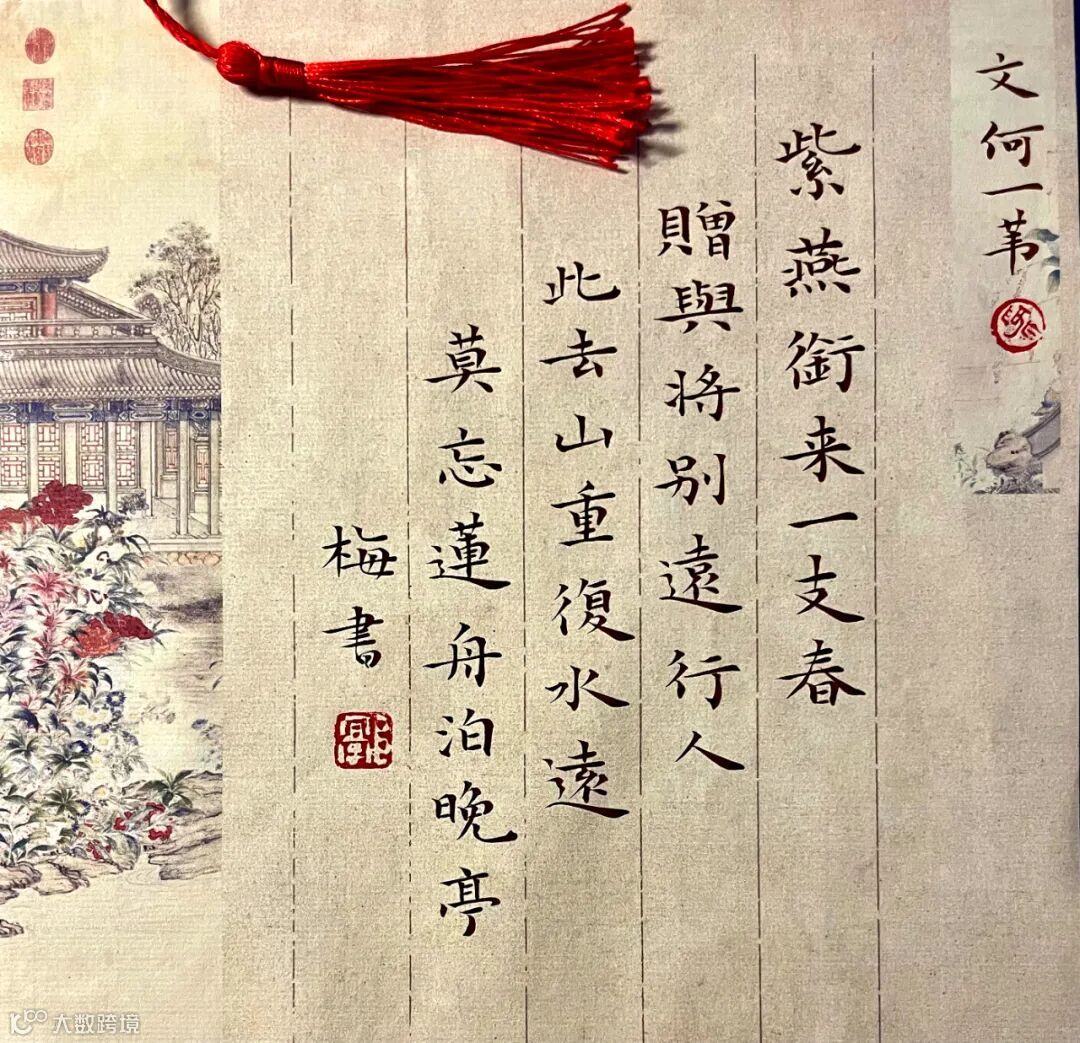 文何一苇
紫燕銜来一支春
贈與将别遠行人
此去山重復水遠
莫忘蓮舟泊晚亭
梅書
大数跨境